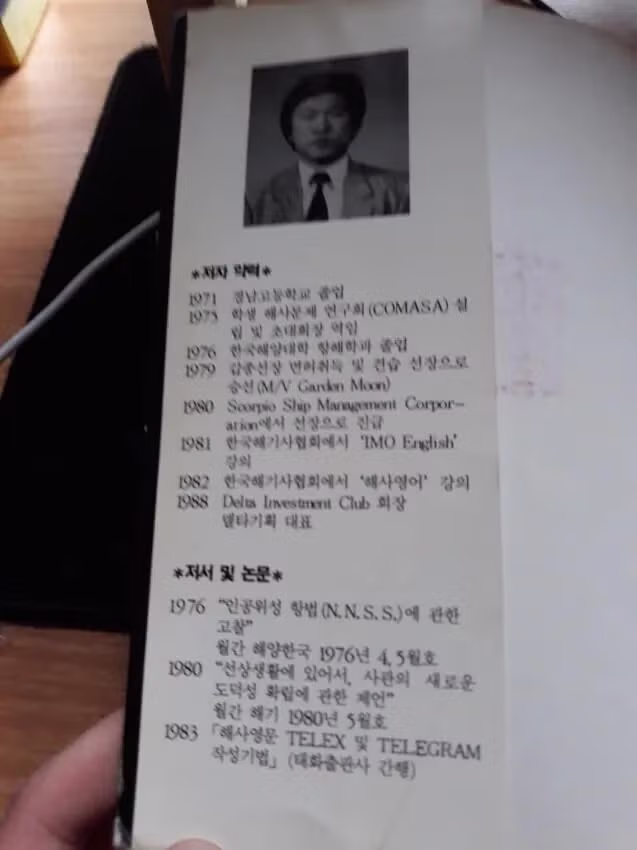 *저자 약력*
1971 경남고등학교 졸업
1975 학생 해사문제 연구회(COMASA) 설
립 및 초대회장 역임
1976 한국해양대학 항해학과 졸업
1979 갑종선장 면허취득 및 견습 선장으로
승선(M/V Garden Moon)
1980 Scorpio Ship Management Corpor-
ation에서 선장으로 진급
1981 한국해기사협회에서 'IMO English'
강의
1982 한국해기사협회에서 '해사영어' 강의
1988 Delta Investment Club 회장
델타기획 대표
*저서 및 논문*
1976 "인공위성 항법(N.N.S.S.)에 관한
고찰"
월간 해양한국 1976년 4, 5월호
1980 "선상생활에 있어서, 사관의 새로운
도덕성 확립에 관한 제언"
월간 해기 1980년 5월호
1983 「해사영문 TELEX 및 TELEGRAM
작성기법」 (태화출판사 간행)